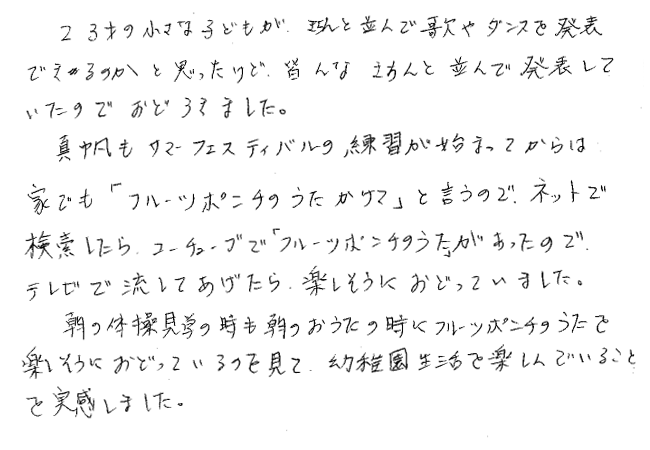 2 3才の小さな子どもが、きちんと並んで歌やダンスを発表
できるのか と思ったけど、皆んな きちんと並んで発表して
いたので おどろきました。
真帆も サマーフェスティバルの練習が始まってからは
家でも「フルーツポンチのうた かけて」と言うので、ネットで
検索したら、ユーチューブで「フルーツポンチのうた」があったので、
テレビで流してあげたら、楽しそうに おどっていました。
朝の体操見学の時も 朝のおうたの時に フルーツポンチのうたで
楽しそうに おどっているのを見て、幼稚園生活を楽しんでいること
を実感しました。